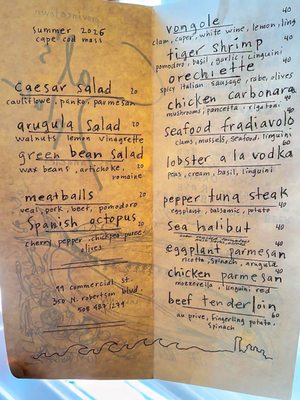 summer 2026
cape cod mass
caesar salad 20
cauliflower, panko, parmesan
arugula salad 20
walnuts lemon vinagrette
green bean salad
wax beans, artichoke, 20
romaine
meatballs 20
veal, pork, beef, pomodoro
Spanish octopus 20
cherry pepper, chickpea puree
olives
99 commercial st
350 N. robertson blvd.
508 487 1279
vongole 40
clam, caper, white wine, lemon, ling
tiger shrimp 40
pomodoro, basil, garlic, linguini
orechiette 40
spicy italian sausage, rabe, olives
chicken carbonara 40
mushrooms, pancetta, rigatoni
seafood fradiavolo 40
clams, mussels, seafood, linguini
lobster a la vodka 60
peas, cream, basil, linguini
pepper tuna steak 40
eggplant, balsamic, potato
sea halibut 40
eggplant parmesan 40
ricotta, spinach, arugula
chicken parmesan 40
mozzerella, linguini, red
beef tenderloin 60
au prive, fingerling potato,
spinach